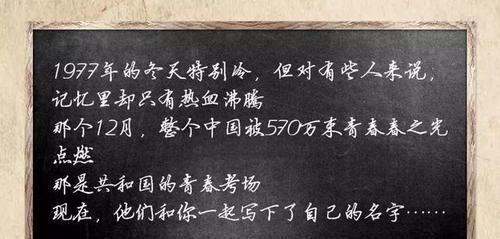 1977年的冬天特别冷，但对有些人来说，
记忆里却只有热血沸腾
那个12月，整个中国被570万束青春春之光
点燃
那是共和国的青春考场
现在，他们和你一起写下了自己的名字……